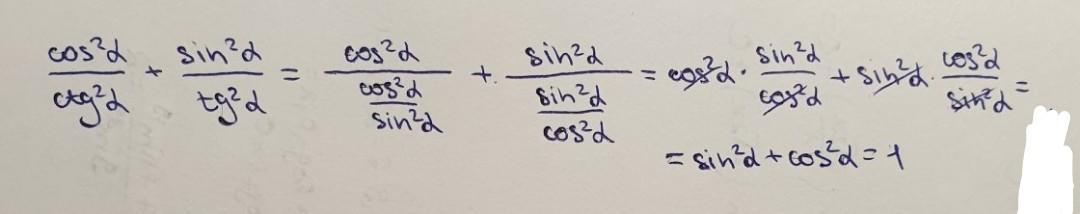 cos²α/ctg²α + sin²α/tg²α = cos²α/(cos²α/sin²α) + sin²α/(sin²α/cos²α) = cos²α · sin²α/cos²α + sin²α · cos²α/sin²α =
= sin²α + cos²α = 1